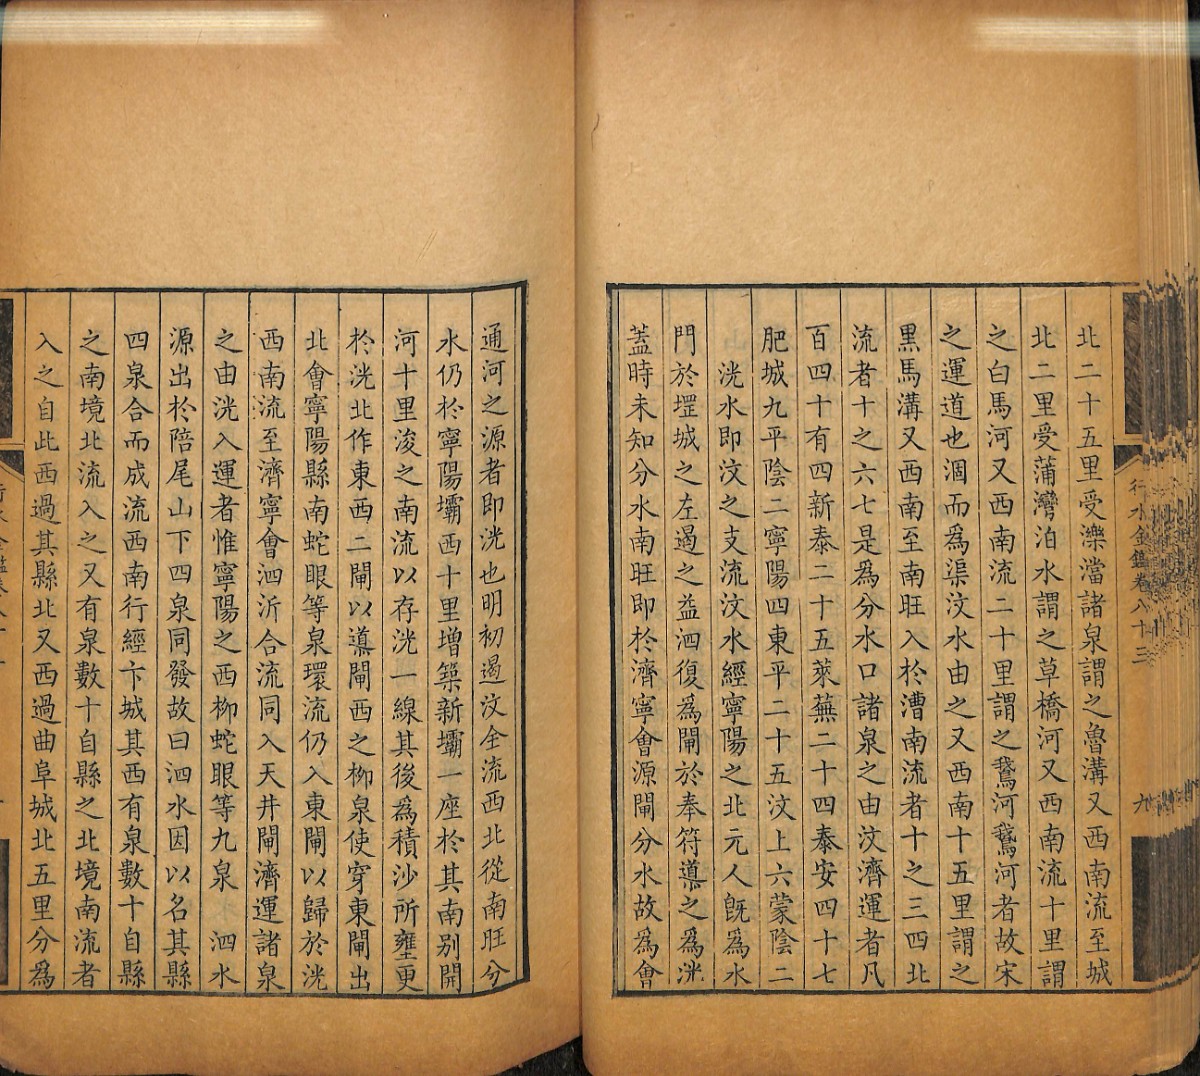 行水金鑑卷八十三
九
北二十五里受濼澢諸泉謂之魯溝又西南流至城
北二里受蒲灣泊水謂之草橋河又西南流十里謂
之白馬河又西南流二十里謂之鵞河鵞河者故宋
之運道也涸而爲渠汶水由之又西南十五里謂之
黑馬溝又西南至南旺入於漕南流者十之三四北
流者十之六七是爲分水口諸泉之由汶濟運者凡
百四十有四新泰二十五萊蕪二十四泰安四十七
肥城九平陰二寧陽四東平二十五汶上六蒙陰二
洸水即汶之支流汶水經寧陽之北元人旣爲水
門於堽城之左遏之益泗復爲閘於奉符導之爲洸
蓋時未知分水南旺即於濟寧會源閘分水故爲會
通河之源者即洸也明初遏汶全流西北從南旺分
水仍於寧陽壩西十里增築新壩一座於其南别開
河十里浚之南流以存洸一線其後爲積沙所壅更
於洸北作東西二閘以導閘西之柳泉使穿東閘出
北會寧陽縣南蛇眼等泉環流仍入東閘以歸於洸
西南流至濟寧會泗沂合流同入天井閘濟運諸泉
之由洸入運者惟寧陽之西柳蛇眼等九泉 泗水
源出於陪尾山下四泉同發故曰泗水因以名其縣
四泉合而成流西南行經卞城其西有泉數十自縣
之南境北流入之又有泉數十自縣之北境南流者
入之自此西過其縣北又西過曲阜城北五里分爲